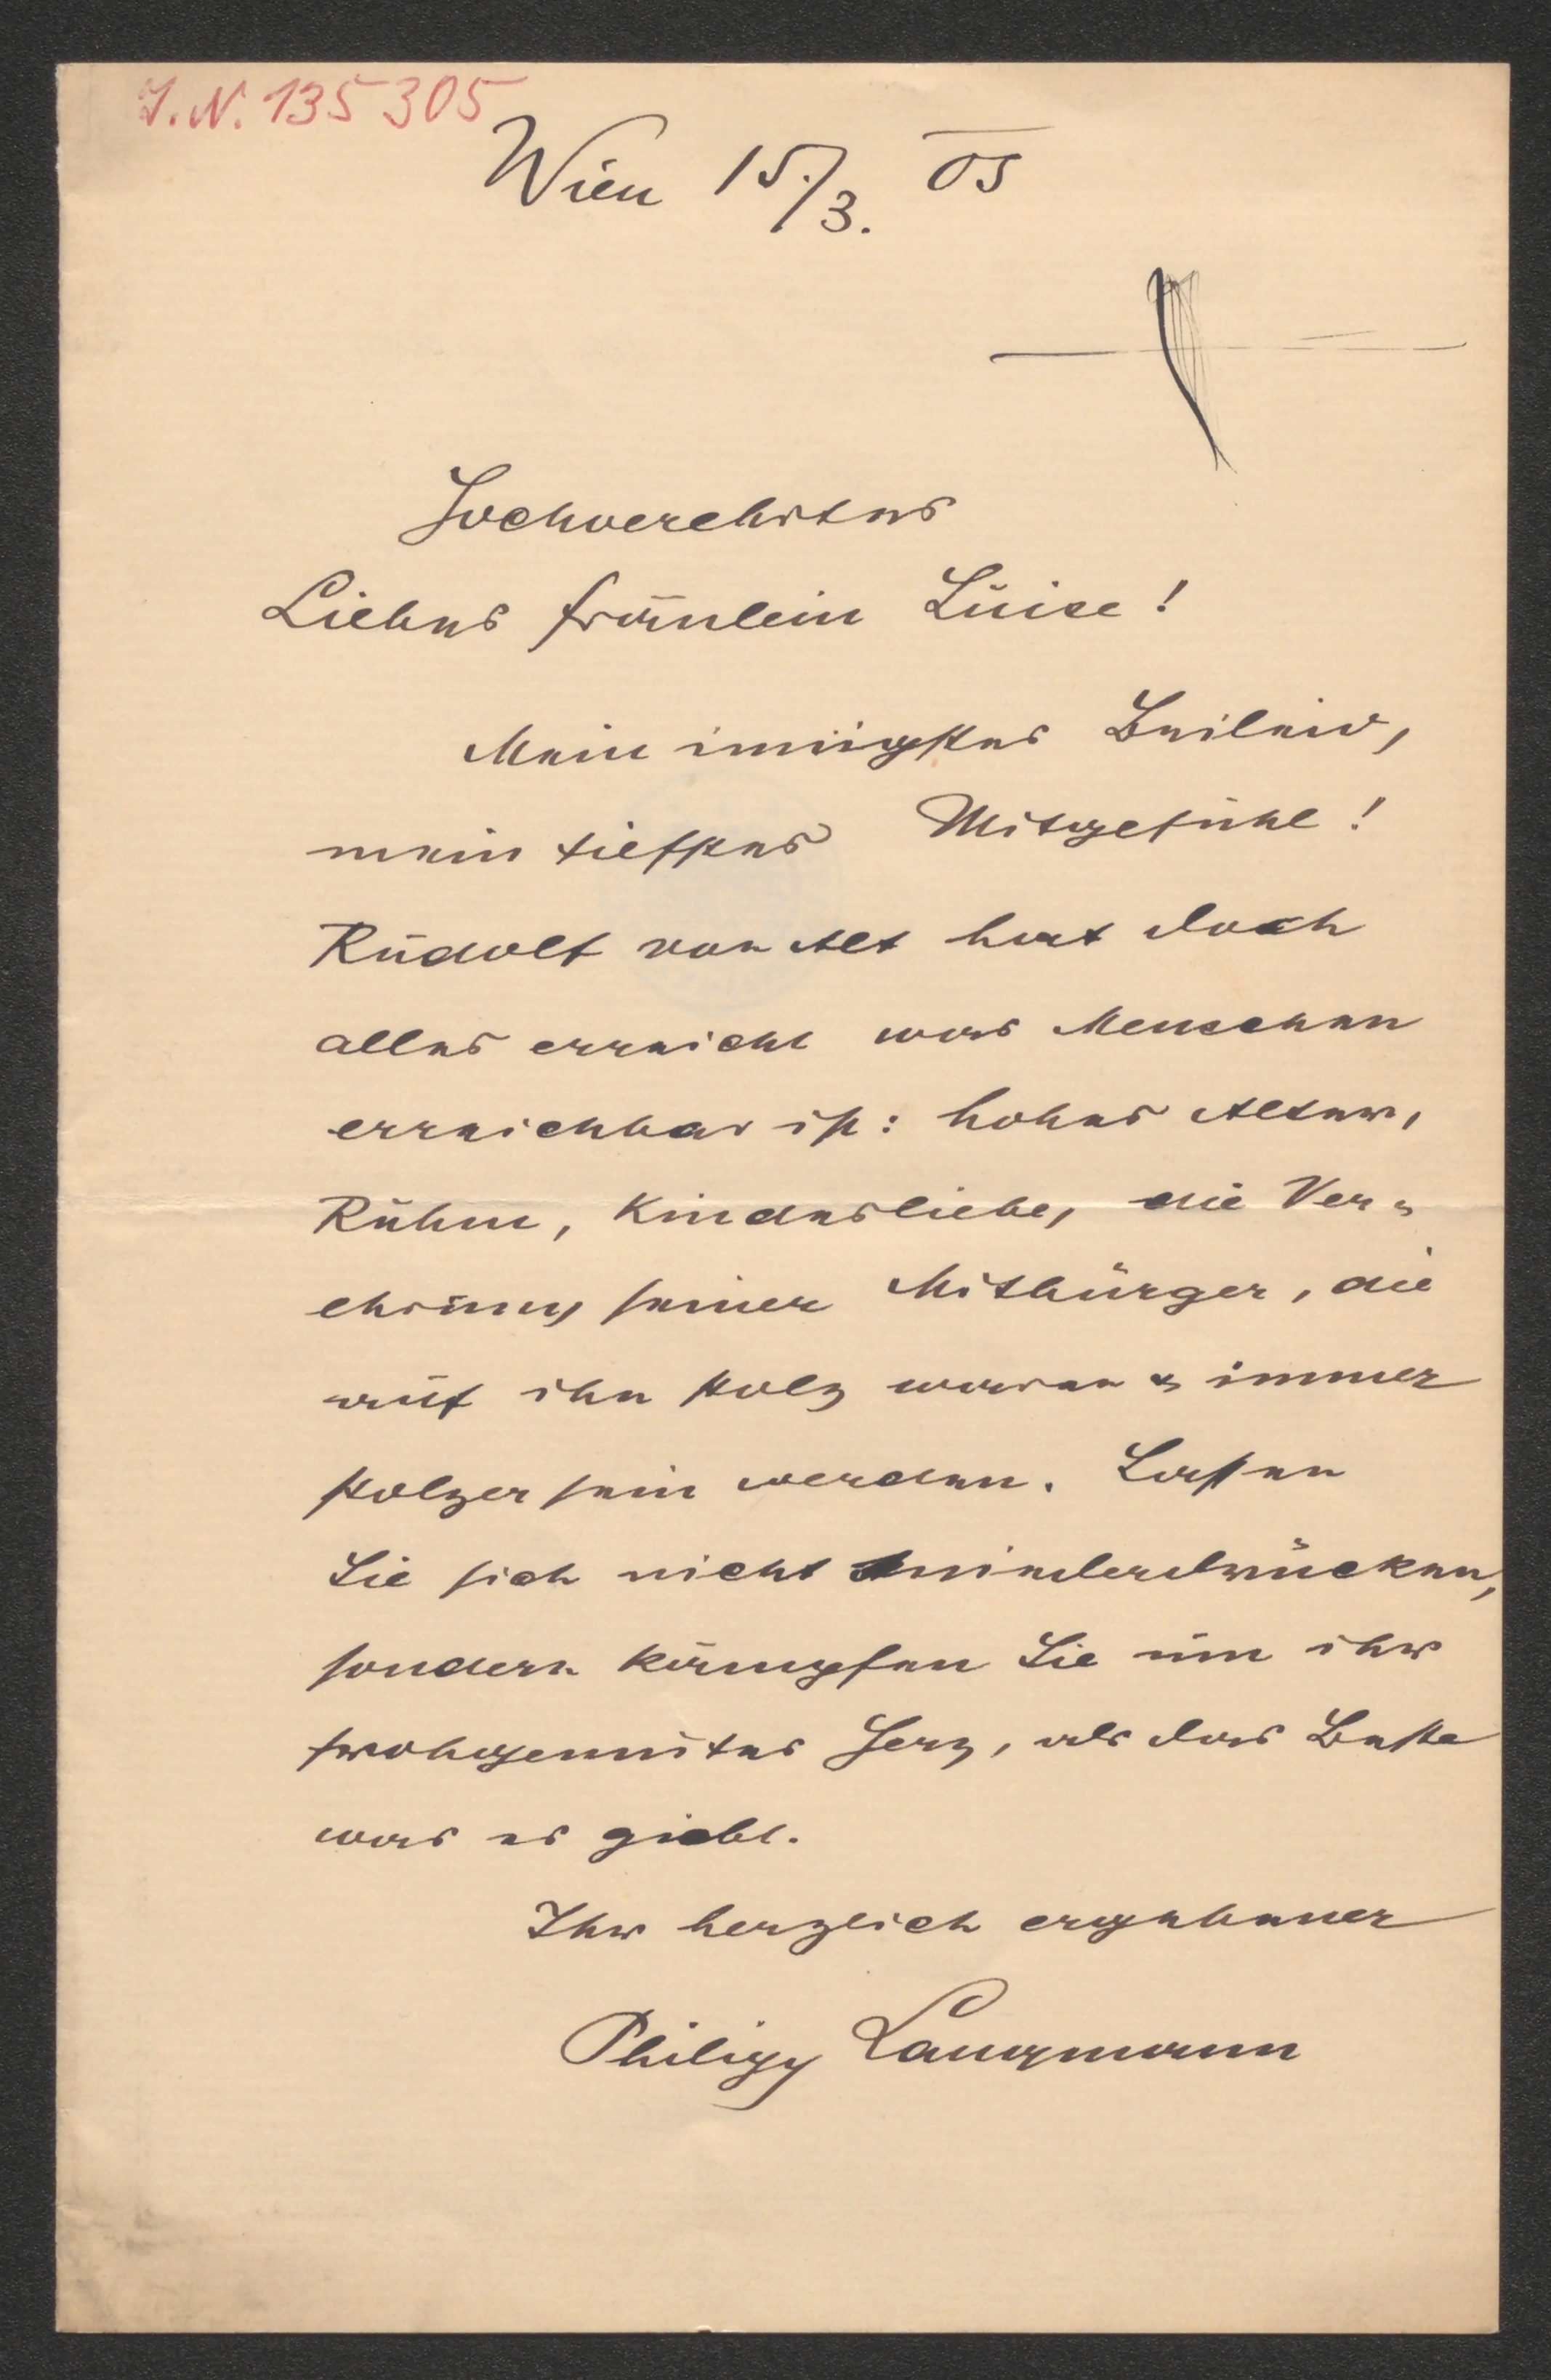 J. N. 135305
Wien 15./3. 05
Hochverehrtes
Liebes Fräulein Luise!
Mein innigstes Beileid,
mein tiefstes Mitgefühl!
Rudolf von Alt hat doch
alles erreicht was Menschen
erreichbar ist: hohes Alter,
Ruhm, Kindesliebe, die Ver=
ehrung seiner Mitbürger, die
auf ihn stolz waren & immer
stolzer sein werden. Lassen
Sie sich nicht niederdrücken,
sondern kämpfen Sie um ihr
frohgemutes Herz, als das Beste
was es giebt.
Ihr herzlich ergebener
Philipp Langmann